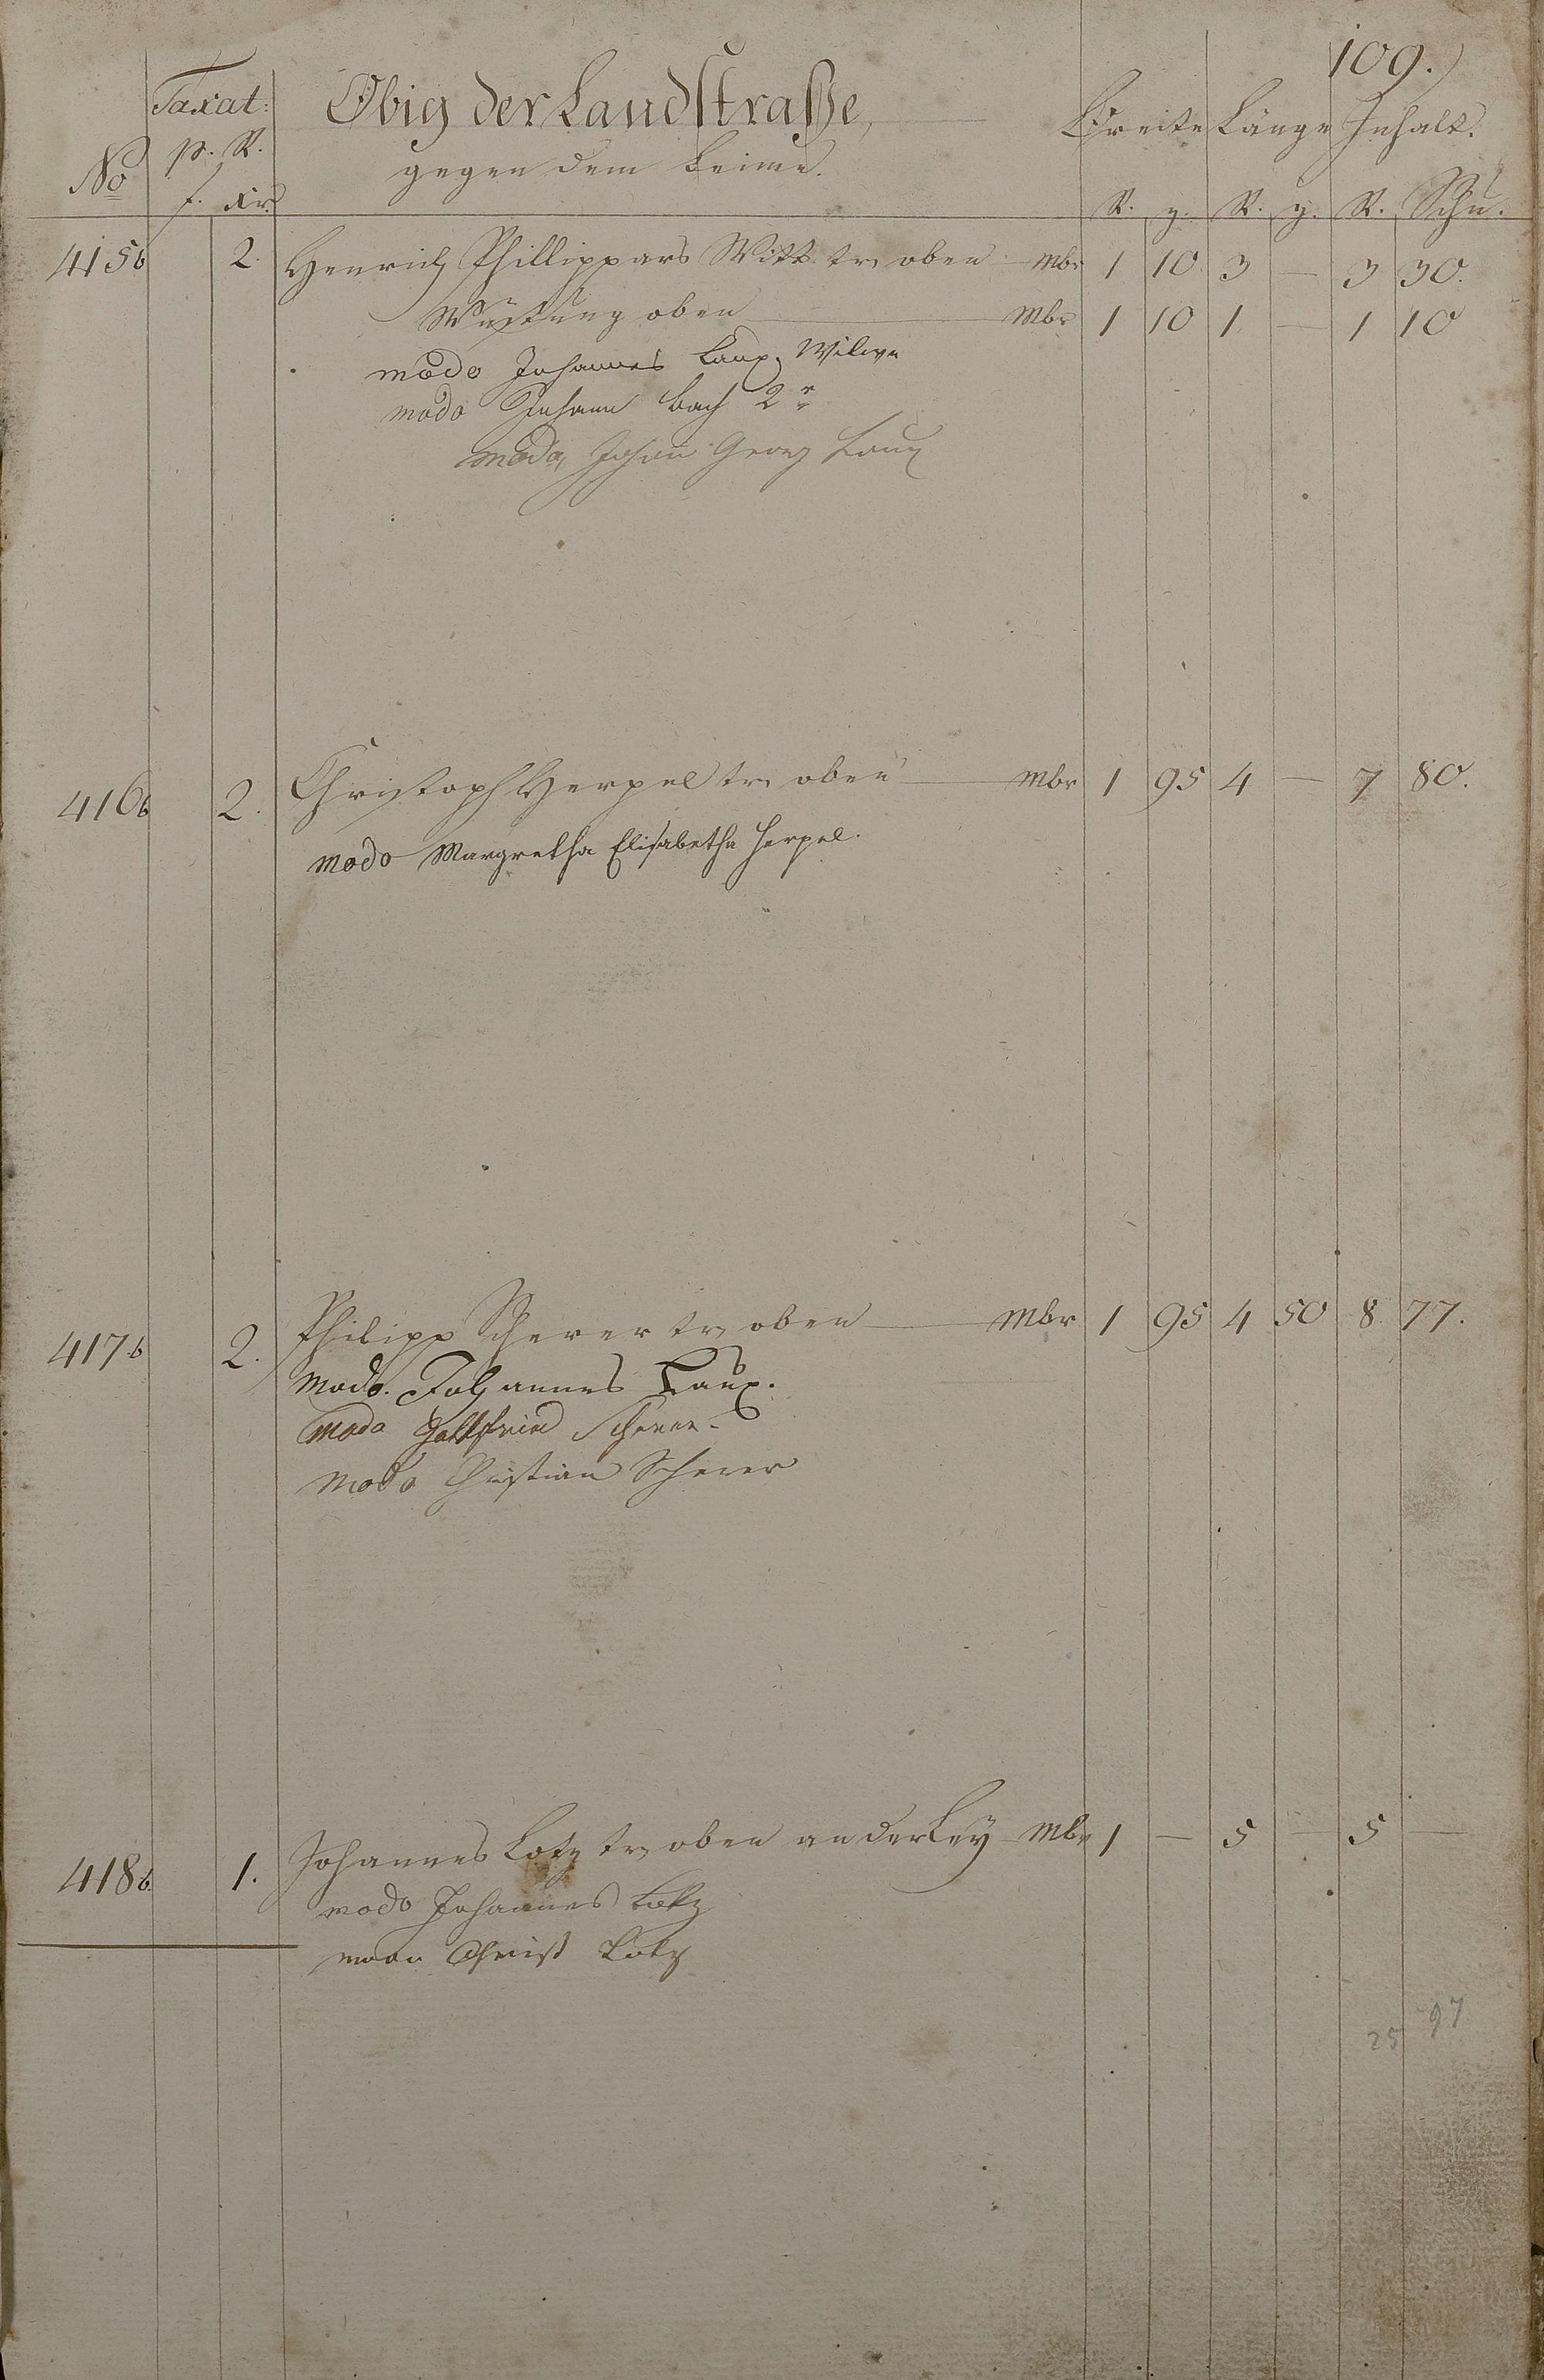 109.)
Taxat: Obig der Landstraße, Breite Länge Inhalt.
No p. R. gegen dem Leime.
f. xr. R. z. R. z. R. Schu.
415b 2. Henrich Phillippars Witt. tr oben Mbr 1 10 3 — 3 30.
Wüstung oben Mbr 1 10 1 — 1 10
modo Johannes Laux Witwe
modo Johann Bach 2r
modo, Johann Georg Laux
416b 2. Christoph Herpel tr oben Mbr 1 95 4 — 7 80.
modo Margretha Elisabetha Herpel.
417b 2. Philipp Scherer tr oben Mbr 1 95 4 50 8 77.
modo. Johannes Laux.
modo Gottfried Scherer
modo Christian Scherer
418b. 1. Johannes Lotz tr oben an der Ley Mbr 1 — 5 — 5 —
modo Johannes Lotz
modo Christ Lotz
25 97